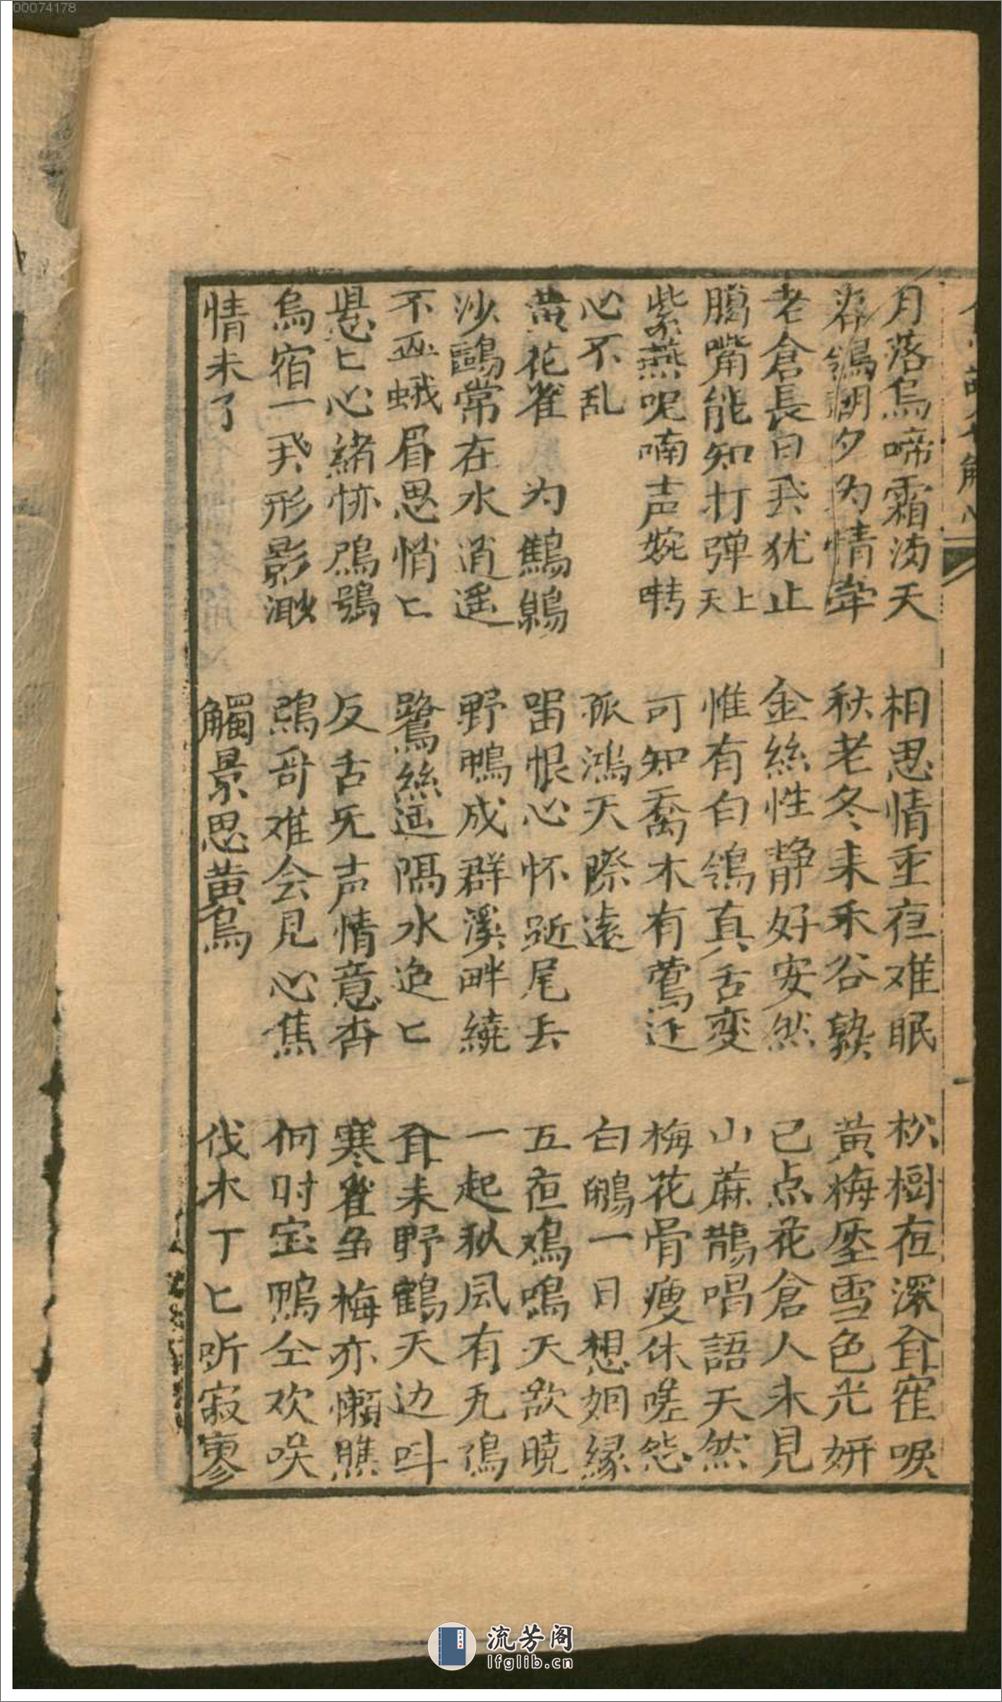 00074178
月落烏啼霜滿天　相思情重夜难眠　松樹夜深耳寉唳
鴿朝夕为情牽　秋老冬来禾谷熟　黄梅坠雪色光妍
老倉長日飛犹止　金絲性静好安然　已点花倉人未見
腊嘴能知打弹上天　惟有白鴿真舌变　山蔴鵲唱語天然
紫燕呢喃声婉轉　可知喬木有鶯迁　梅花骨瘦休嗟怨
心不乱　孤鴻天際遠　白鷴一日想姻縁
黄花雀　为鷦鷯　畄恨心怀跡尾长　五夜鳮鳴天欲曉
沙鷗常在水逍遥　野鴨成群溪畔繞　一起秋风有九鳮
不画蛾眉思悄匕　鷺絲遥隔水迢匕　耳来野鶴天边叫
悬匕心緒怀鴞　反舌旡声情意杳　寒雀争梅亦懒瞧
烏宿一飛形影渺　鸚哥难会見心焦　何时宝鴨仝欢笑
情未了　觸景思黄鳥　伐木丁匕听寂寥
流芳阁
lfglib.cn